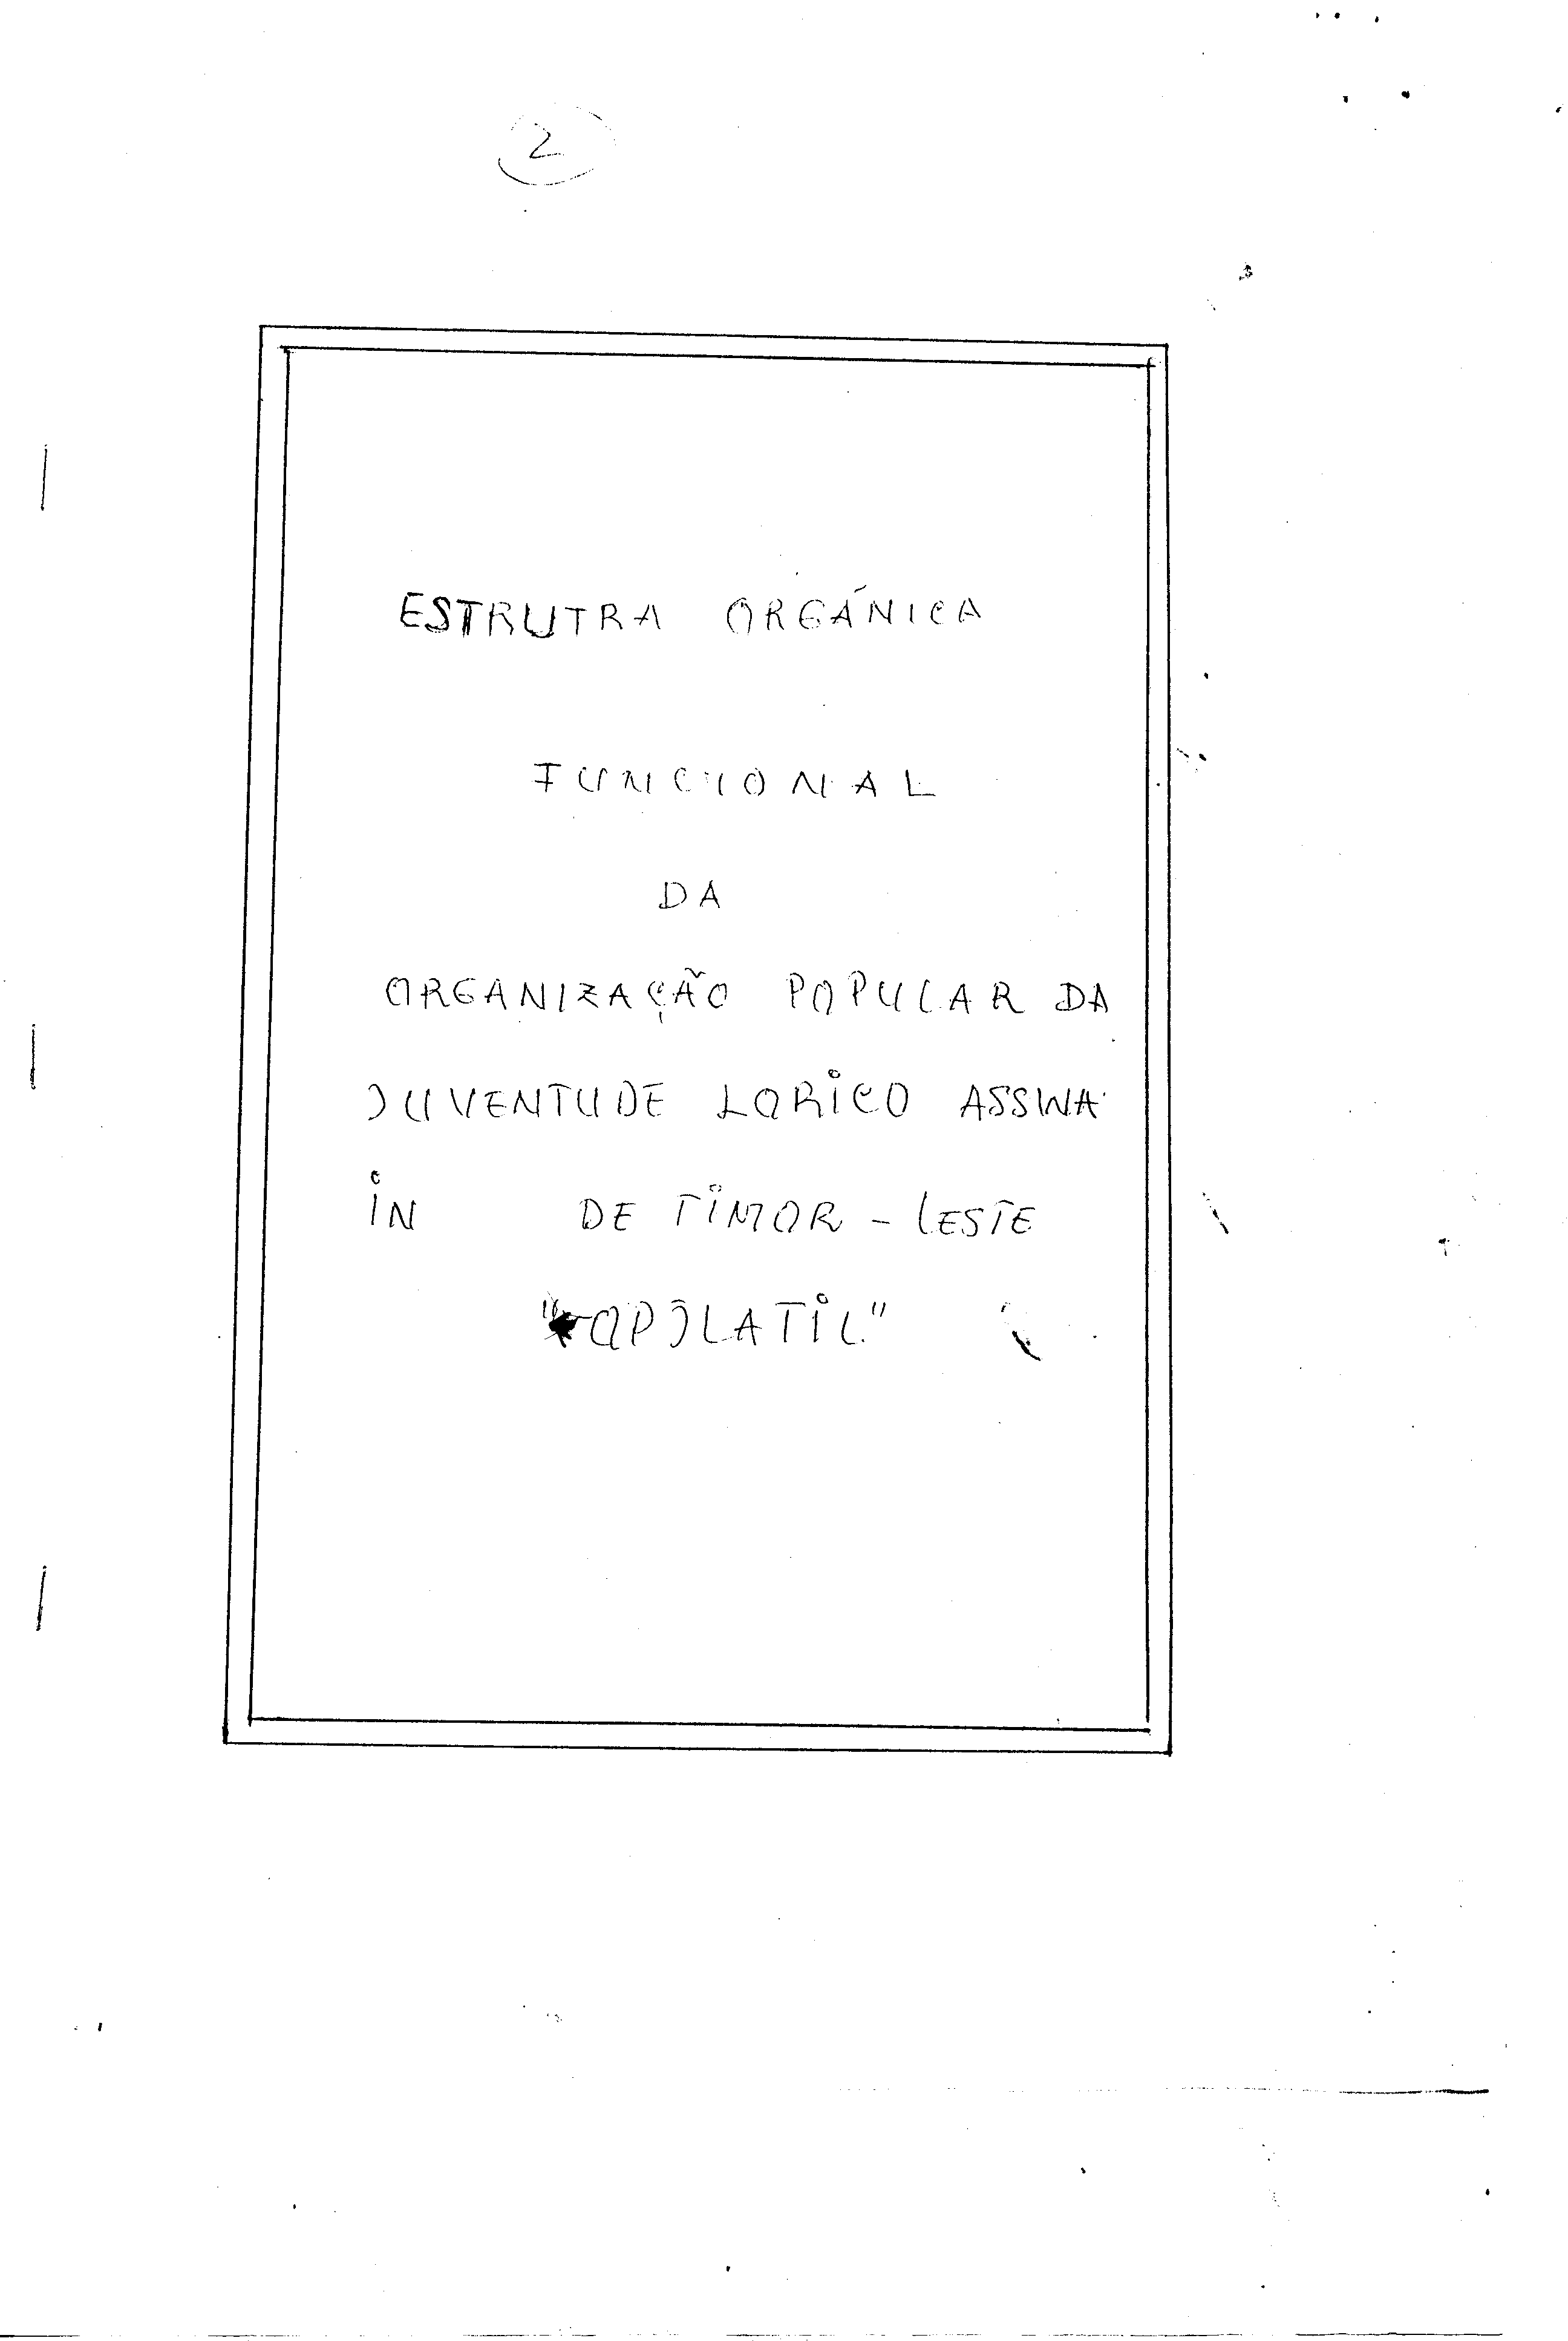 2
ESTRUTRA ORGÁNICA
FUNCIONAL
DA
ORGANIZAÇÃO POPULAR DA
JUVENTUDE LORICO ASSWA
IN DE TIMOR - LESTE
"OPJLATIL"